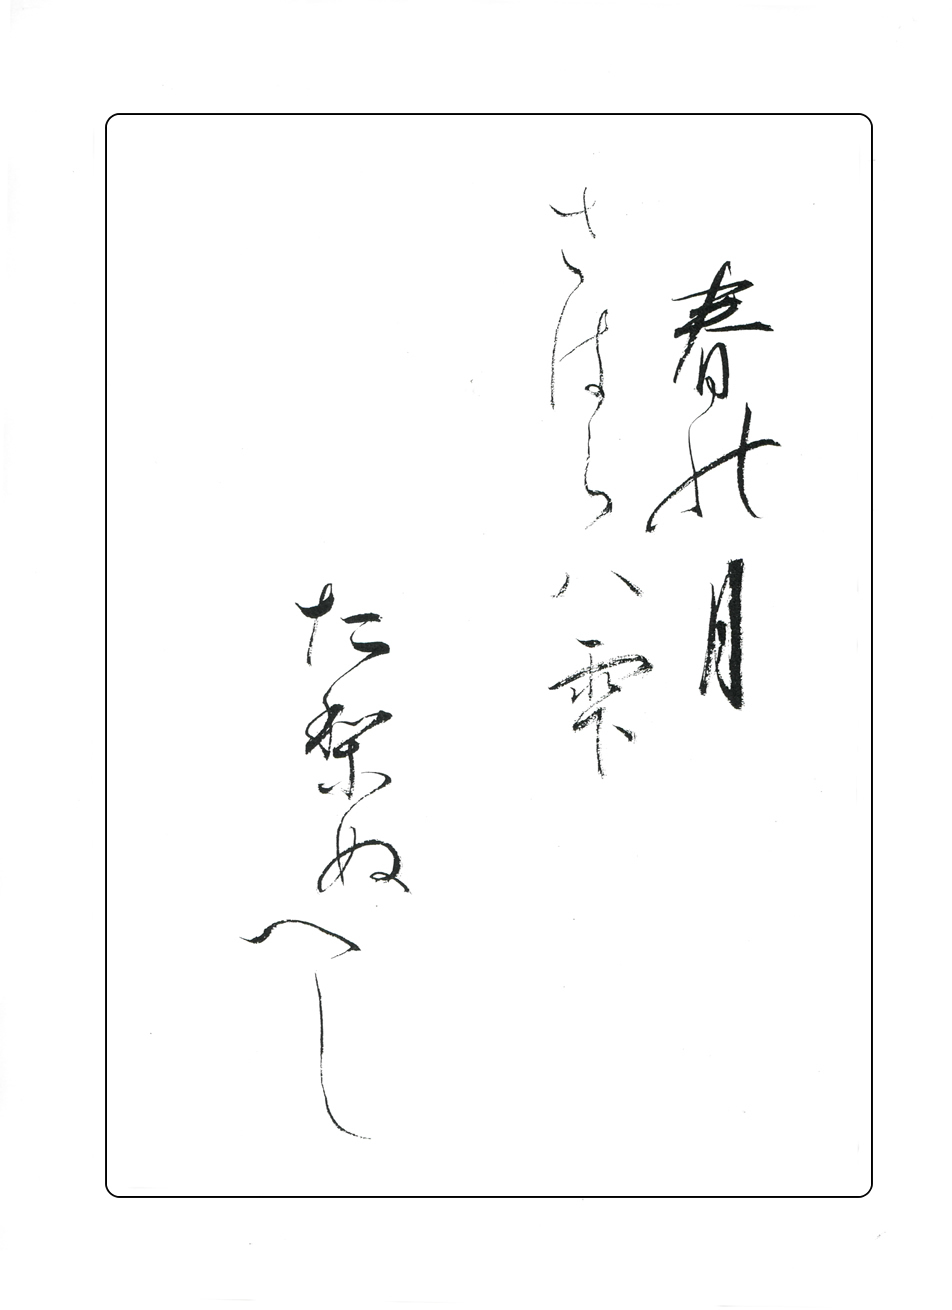 春の月
さはらハ雫
た梨ぬへし